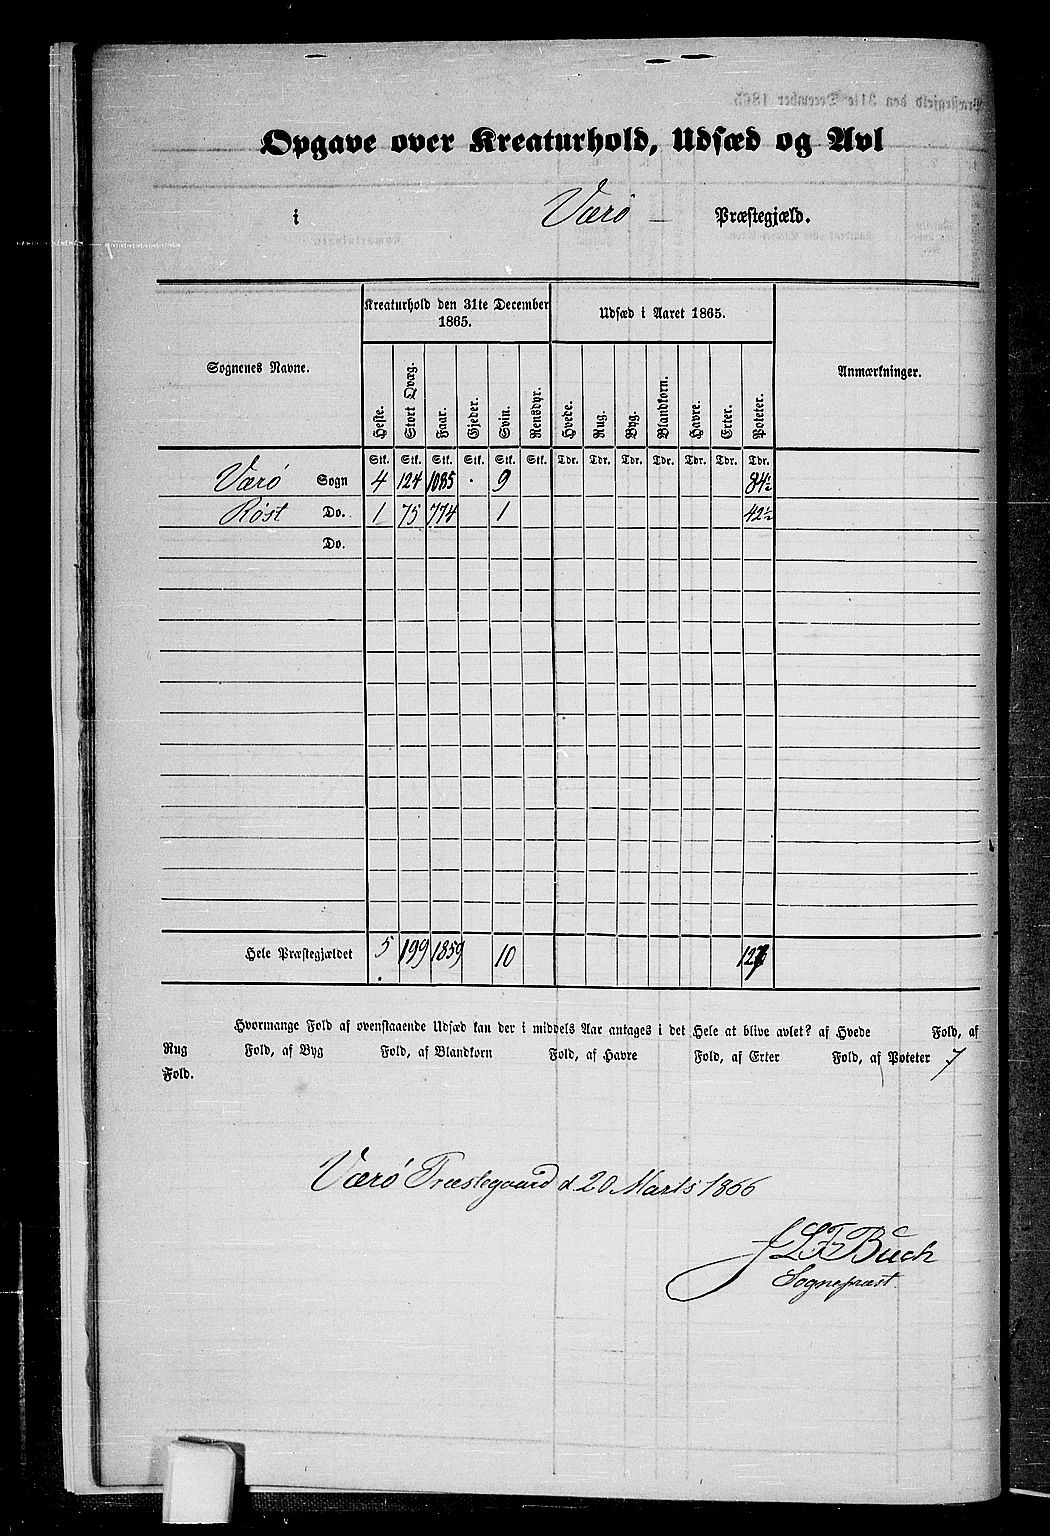 Opgave over Kreaturhold, Udsæd og Avl
i Værø Præstegjæld.
Sognenes Navne. Kreaturhold den 31te December 1865. Udsæd i Aaret 1865. Anmærkninger.
Heste. Stort Qvæg. Faar. Gjeder. Svin. Rensdyr. Hvede. Rug. Byg. Blandkorn. Havre. Erter. Poteter.
Stk. Stk. Stk. Stk. Stk. Stk. Tdr. Tdr. Tdr. Tdr. Tdr. Tdr. Tdr.
Værø Sogn 4 124 1085 . 9 84½
Røst Do. 1 75 774 1 42½
Do.
Hele Præstegjældet 5 199 1859 10 127
Hvormange Fold af ovenstaaende Udsæd kan der i middels Aar antages i det Hele at blive avlet? af Hvede Fold, af
Rug Fold, af Byg Fold, af Blandkorn Fold, af Havre Fold, af Erter Fold, af Poteter 7
Fold.
Værø Præstegaard d 20 Marts 1866
J L F Buch
Sognepræst.